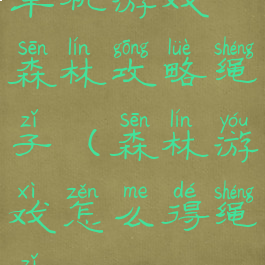 单机游戏
sēn lín gōng lüè shéng
森林攻略绳
zǐ sēn lín yóu
子（森林游
xì zěn me dé shéng
戏怎么得绳
zǐ